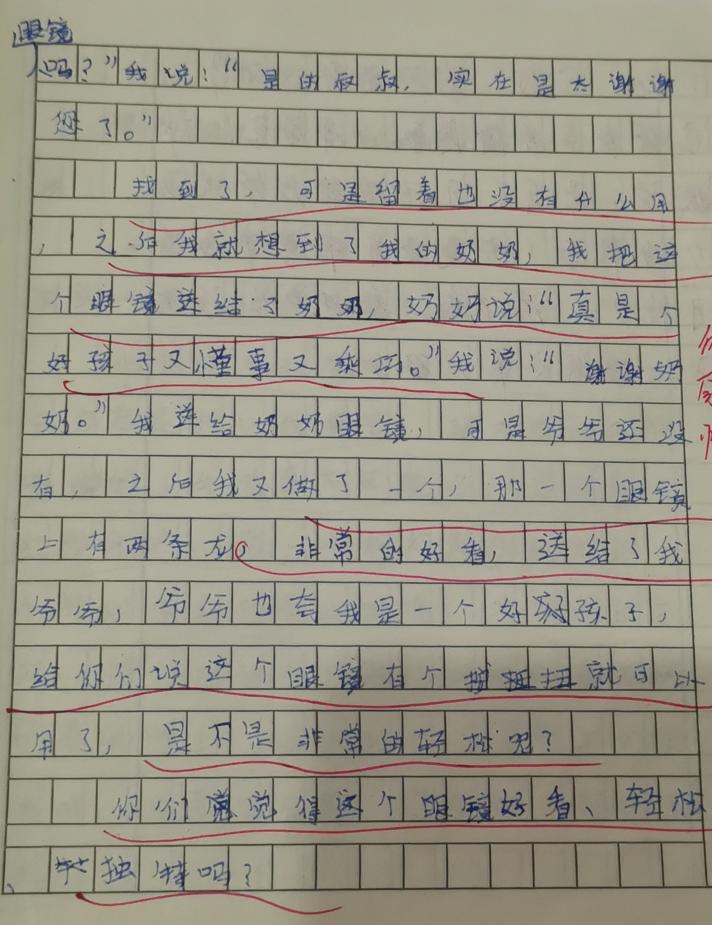 眼镜
吗？”我说：“是的叔叔，实在是太谢谢
您了。”
找到了，可是留着也没有什么用
，之后我就想到了我的奶奶，我把这
个眼镜送给了奶奶，奶奶说：“真是个
好孩子又懂事又乖巧。”我说：“谢谢奶
奶。”我送给奶奶眼镜，可是爷爷还没
有，之后我又做了一个，那一个眼镜
上有两条龙。非常的好看，送给了我
爷爷，爷爷也夸我是一个好孩子，
给你们说这个眼镜有个按扭就可以
用了，是不是非常的轻松呢？
你们觉得这个眼镜好看、轻松
、独特吗？